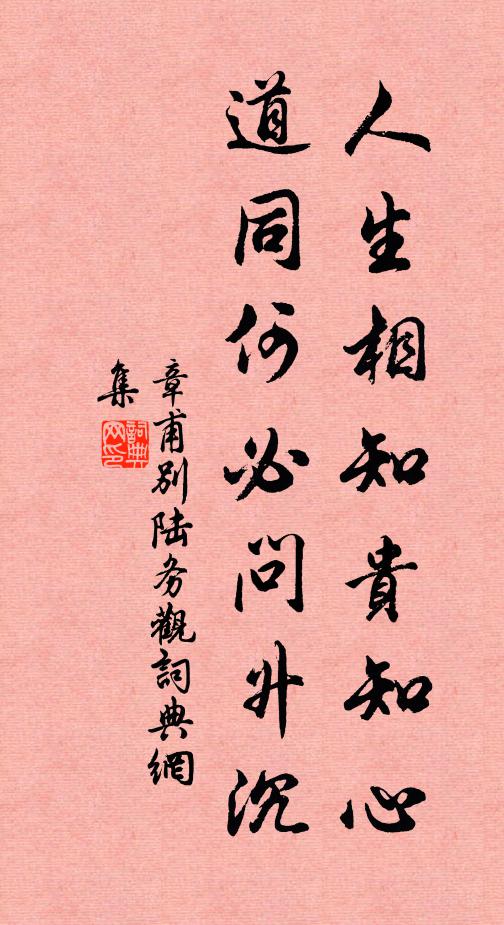 人生相知貴知心
道同何必問升沉
章甫別陸务觀詞典網
集
詞典網印